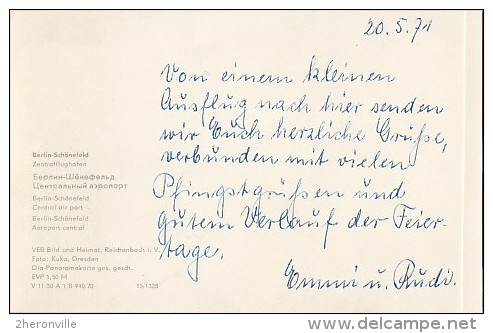 20.5.71
Von einem kleinen
Ausflug nach hier senden
wir Euch herzliche Grüße,
verbunden mit vielen
Pfingstgrüßen und
gutem Verlauf der Feier-
tage.
Emmi u. Rudi.
Berlin-Schönefeld
Zentralflughafen
Берлин-Шёнефельд
Центральный аэропорт
Berlin-Schönefeld
Central air port
Berlin-Schönefeld
Aéroport central
VEB Bild und Heimat, Reichenbach i. V.
Foto: Kuka, Dresden
Dia-Panoramakarte ges. gesch.
EVP 1,50 M
V 11 50 A 1 B 940.70 15/1328
2heronville
delcampe.net